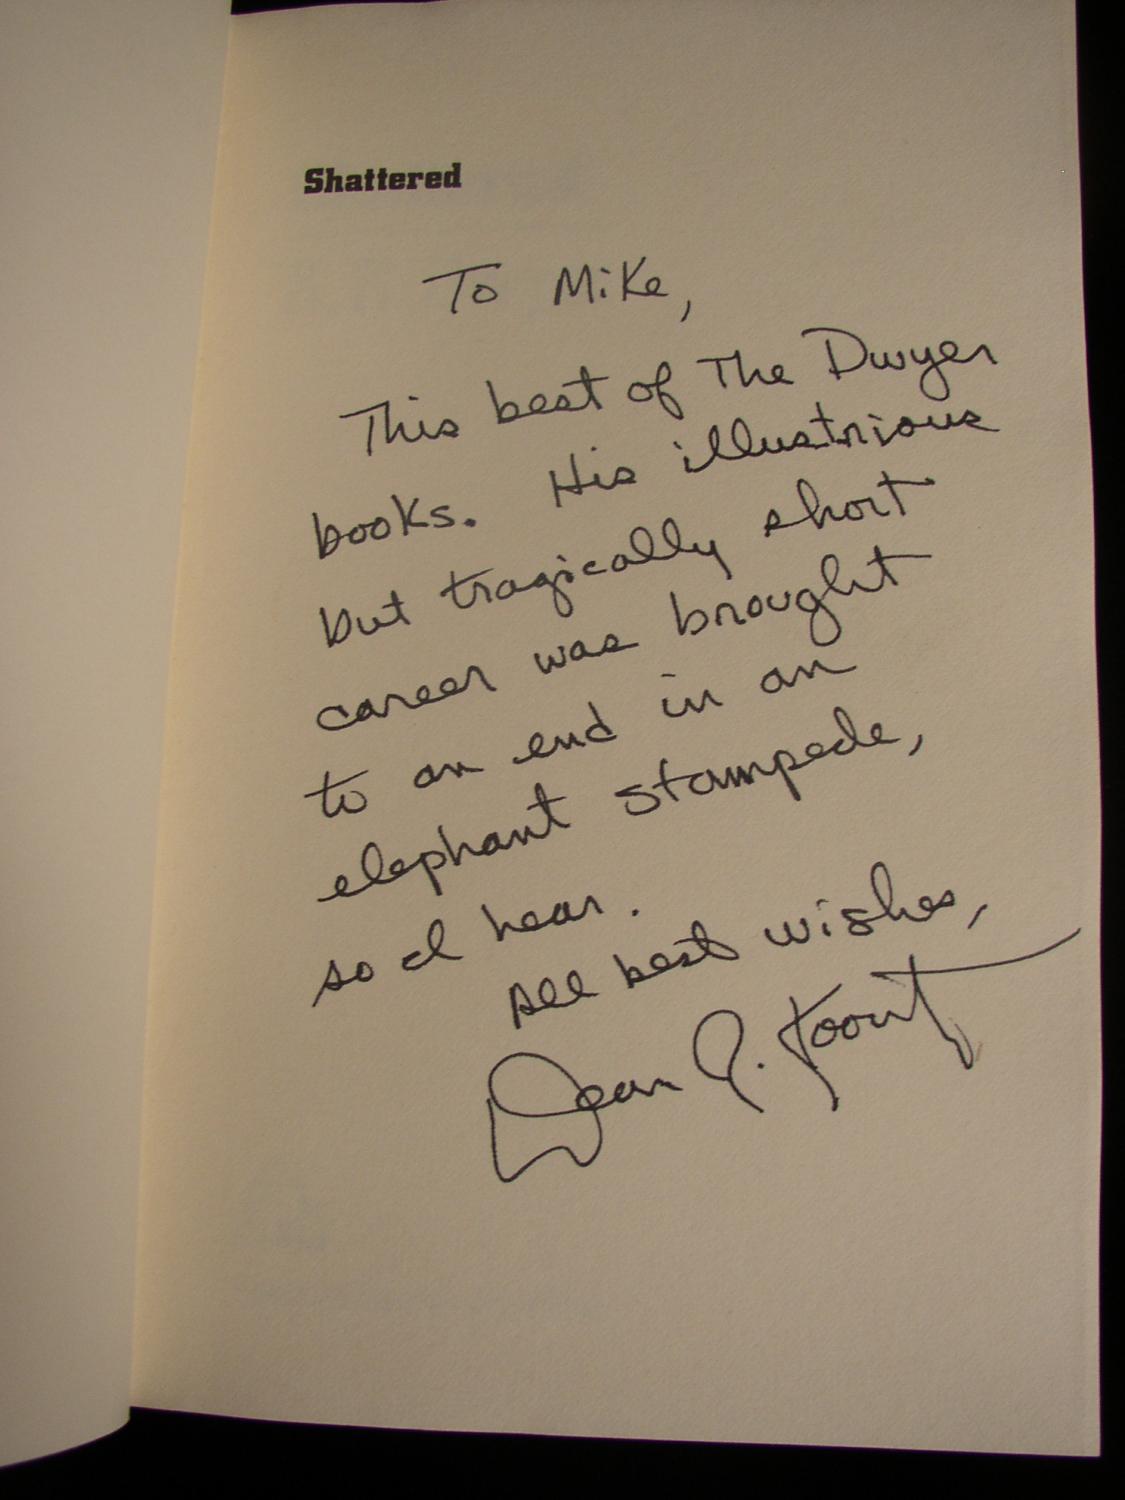 Shattered
To Mike,
This best of The Dwyer
books. His illustrious
but tragically short
career was brought
to an end in an
elephant stampede,
so I hear.
All best wishes,
Dean R. Koontz